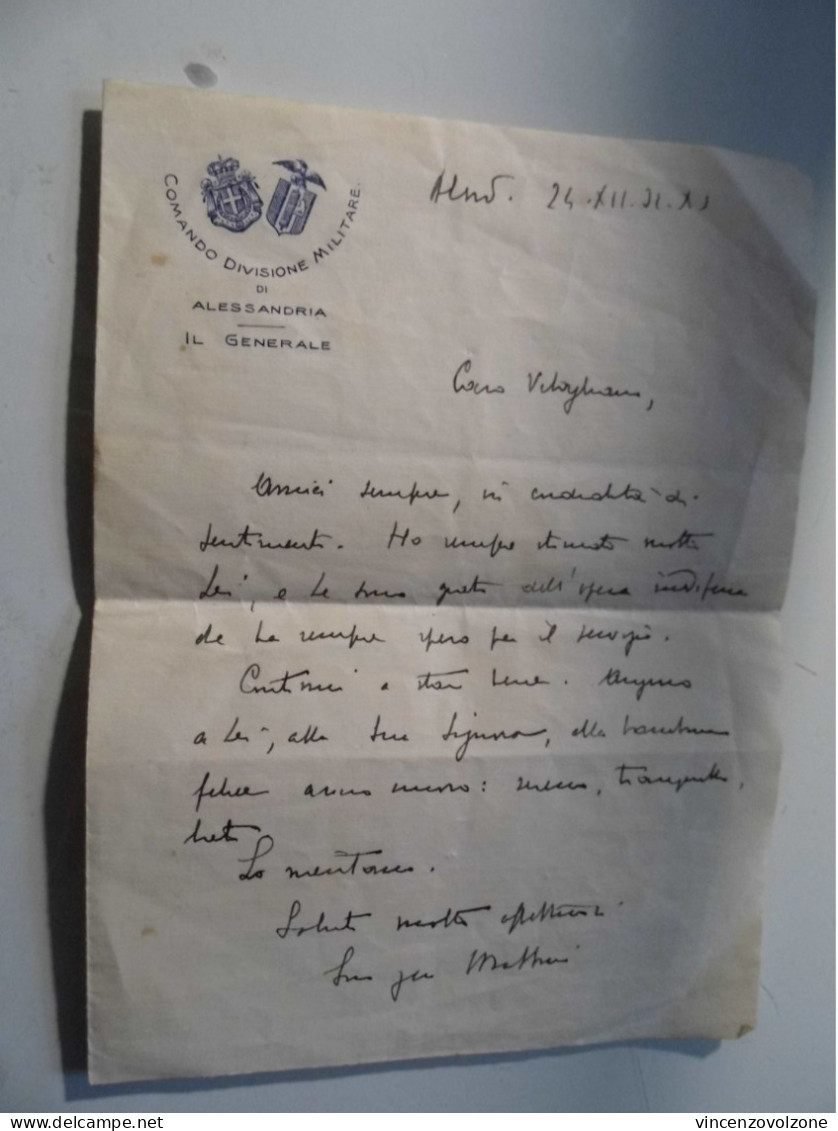 COMANDO DIVISIONE MILITARE
DI
ALESSANDRIA
IL GENERALE
24.XII.32.XI
Caro
Amici sempre, in cordialità di
sentimenti. Ho sempre stimato molto
Lei, e Le sono grato dell'opera
che ha sempre speso per il servizio.
Continui a star bene. Auguro
a Lei, alla Sua Signora, alla bambina
felice anno nuovo: sereno, tranquillo,
lieto
Lo meritano.
Saluti molto affettuosi
Suo gen
vincenzovolzone